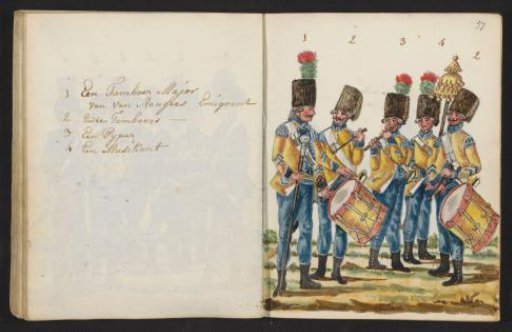 1 Een Tamboer Major
van van Nauglés Emigrant
2 Twee Tamboers —
3 Een Pyper
4 Een Musikant
1 2 3 4 2